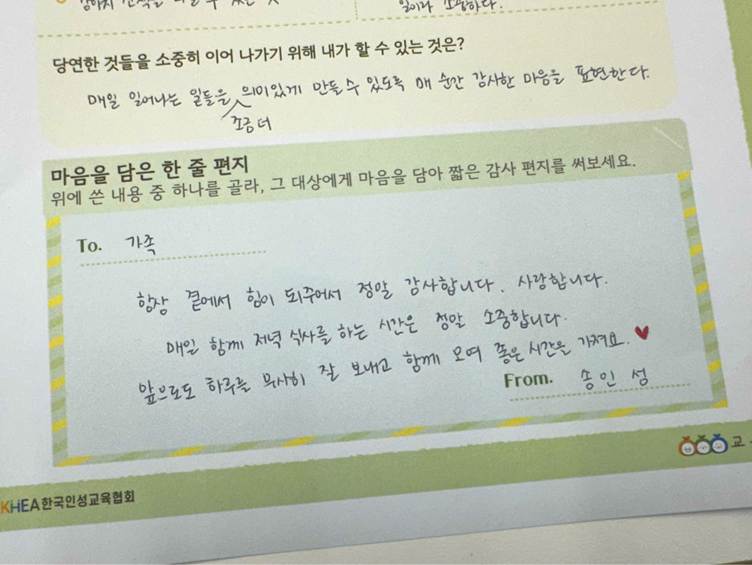 당연한 것들을 소중히 이어 나가기 위해 내가 할 수 있는 것은?
매일 일어나는 일들을 조금 더 의미있게 만들 수 있도록 매 순간 감사한 마음을 표현한다.
마음을 담은 한 줄 편지
위에 쓴 내용 중 하나를 골라, 그 대상에게 마음을 담아 짧은 감사 편지를 써보세요.
To. 가족
항상 곁에서 힘이 되주어서 정말 감사합니다. 사랑합니다.
매일 함께 저녁 식사를 하는 시간은 정말 소중합니다.
앞으로도 하루를 무사히 잘 보내고 함께 모여 좋은 시간을 가져요.
From. 송인성
KHEA 한국인성교육협회
교